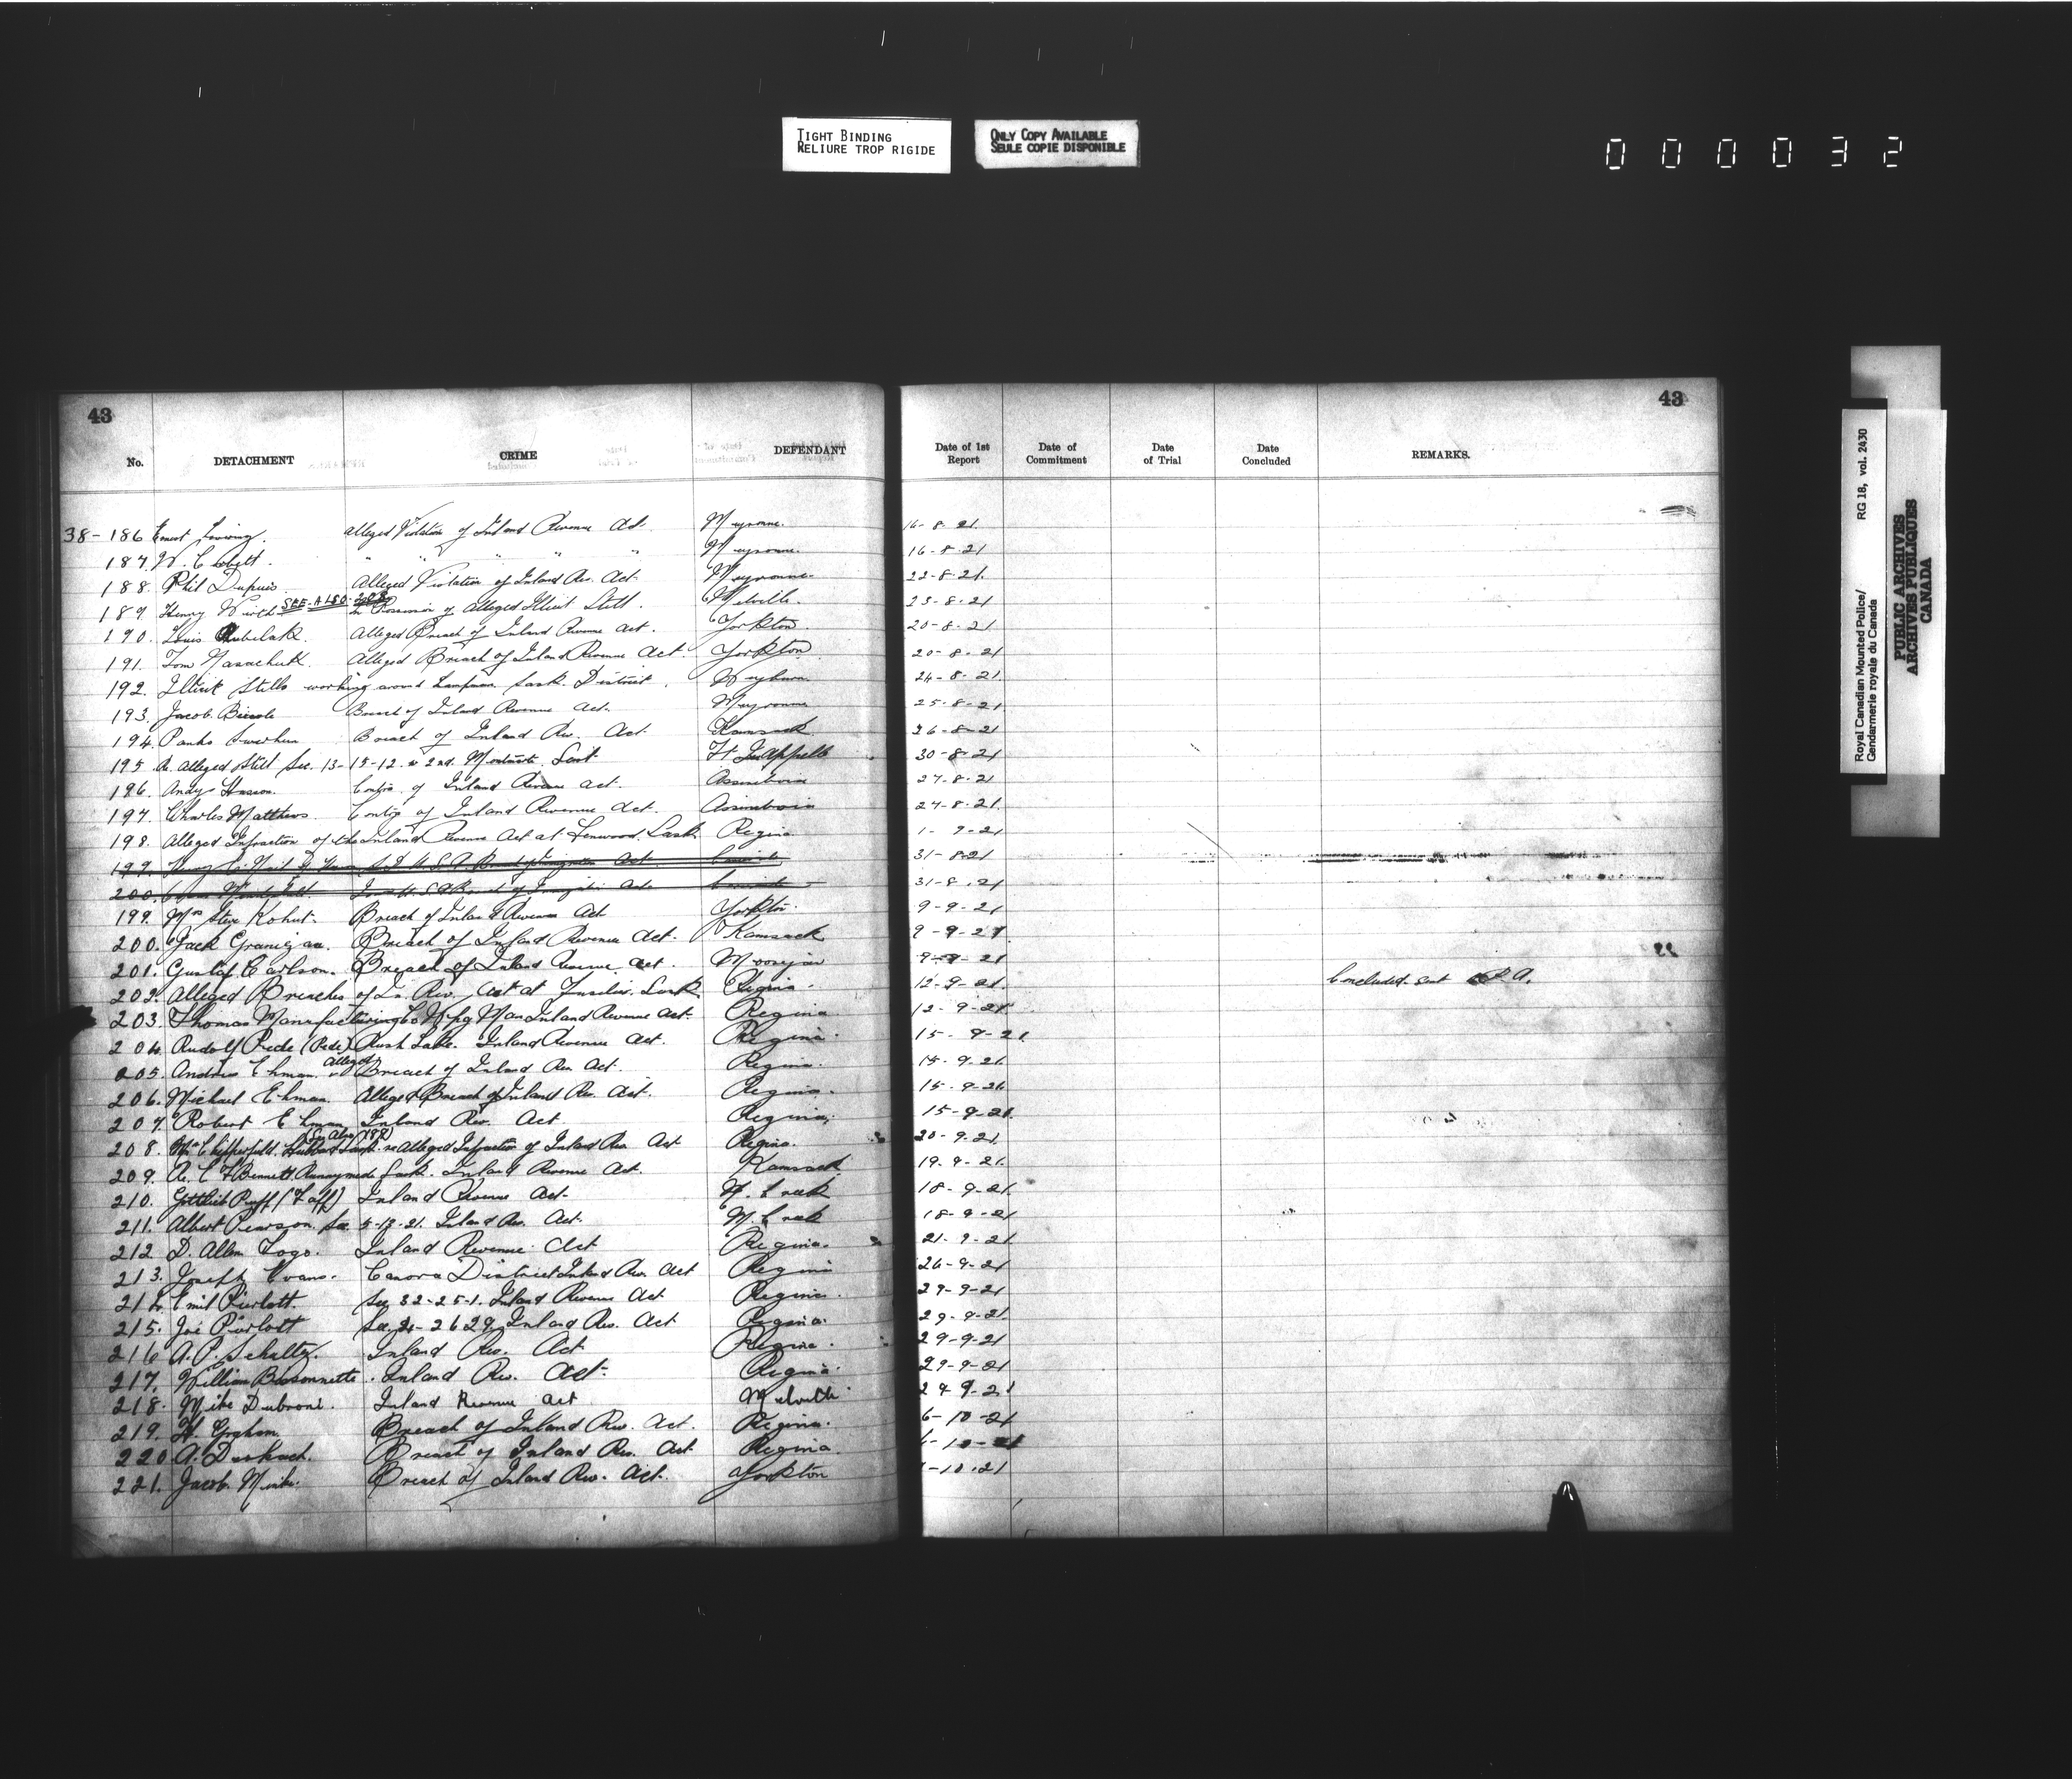 TIGHT BINDING
RELIURE TROP RIGIDE
ONLY COPY AVAILABLE
SEULE COPIE DISPONIBLE
000032
43
43
No. DETACHMENT CRIME DEFENDANT Date of 1st Report Date of Commitment Date of Trial Date Concluded REMARKS.
38-186 Ernest alleged Violation of Inland Revenue Act. Meyronne. 16-8-21.
187. W. " " " " Meyronne. 16-8-21
188. Phil Dupuis Alleged Violation of Inland Rev. Act. Meyronne. 22-8-21.
SEE-ALSO-208
189. Henry Wirth In Possession of Alleged Illicit Still. Melville. 23-8-21
190. Louis Alleged Breach of Inland Revenue Act. Yorkton. 20-8-21
191. Tom Alleged Breach of Inland Revenue Act. Yorkton 20-8-21
192. Illicit Stills working around Lampman Sask. District. Weyburn 24-8-21.
193. Jacob Breach of Inland Revenue Act. Meyronne 25-8-21
194. Panko Breach of Inland Rev. Act. Kamsack 26-8-21
195 Re. alleged Still Sec. 13-15-12. W 2nd. Montmartre, Sask Ft Qu'Appelle 30-8-21
196. Andy Contra. of Inland Revenue Act. Assiniboia 27-8-21
197. Charles Matthews. Contra of Inland Revenue Act. Assiniboia 27-8-21.
198. Alleged Infraction of the Inland Revenue Act at Lenwood. Sask. Regina 1-9-21
199. Act. 31-8-21
200. Act. 31-8-21
199. Mrs Steve Kohut. Breach of Inland Revenue Act Yorkton. 9-9-21
200. Jack Breach of Inland Revenue Act. Kamsack 9-9-21.
201. Gustaf Carlson. Breach of Inland Revenue Act. Moosejaw 9-9-21
202. Alleged Breaches of In. Rev. Act at Sask. Regina. 12-9-21. Concluded. Sent P.A.
203. Thomas Manufacturing Co Wpg Man Inland Revenue Act. Regina 12-9-21
204. Rudolf Rede (Pede) Rush Lake. Inland Revenue Act. Regina. 15-9-21.
205. Andrew Ehman. Alleged Breach of Inland Rev Act. Regina. 15-9-21.
206. Michael Ehman. Alleged Breach of Inland Rev. Act. Regina. 15-9-21.
207. Robert Ehman Inland Rev. Act Regina. 15-9-21.
(See Also 189)
208. Mr Chipperfield. Hubbard Sask. re Alleged Infraction of Inland Rev Act Regina. 20-9-21.
209. Re. C. F Bennett Runnymede Sask. Inland Revenue Act. Kamsack 19-9-21.
210. Gottlieb Puff (Faff) Inland Revenue Act. M. Creek 18-9-21.
211. Albert Pearson. Sec 5-13-21. Inland Rev. Act. M. Creek 18-9-21
212. D. Allen Togo. Inland Revenue Act Regina. 21-9-21
213. Joseph Evans. Canora District Inland Rev. Act Regina 26-9-21
214. Emil Pierlott. Sec 32-25-1. Inland Revenue Act Regina. 29-9-21
215. Joe Pierlott Sec. Inland Rev. Act Regina. 29-9-21.
216 A. P. Schultz. Inland Rev. Act Regina. 29-9-21
217. William Bissonnette. Inland Rev. Act. Regina. 29-9-21
218. Mike Dubroni. Inland Revenue Act Melville. 29 9-21
219. H. Graham. Breach of Inland Rev. Act. Regina. 6-10-21
220 A. Breach of Inland Rev. Act. Regina
221. Jacob Breach of Inland Rev. Act. Yorkton -10-21
Royal Canadian Mounted Police/ RG 18, vol. 2430
Gendarmerie royale du Canada
PUBLIC ARCHIVES
ARCHIVES PUBLIQUES
CANADA